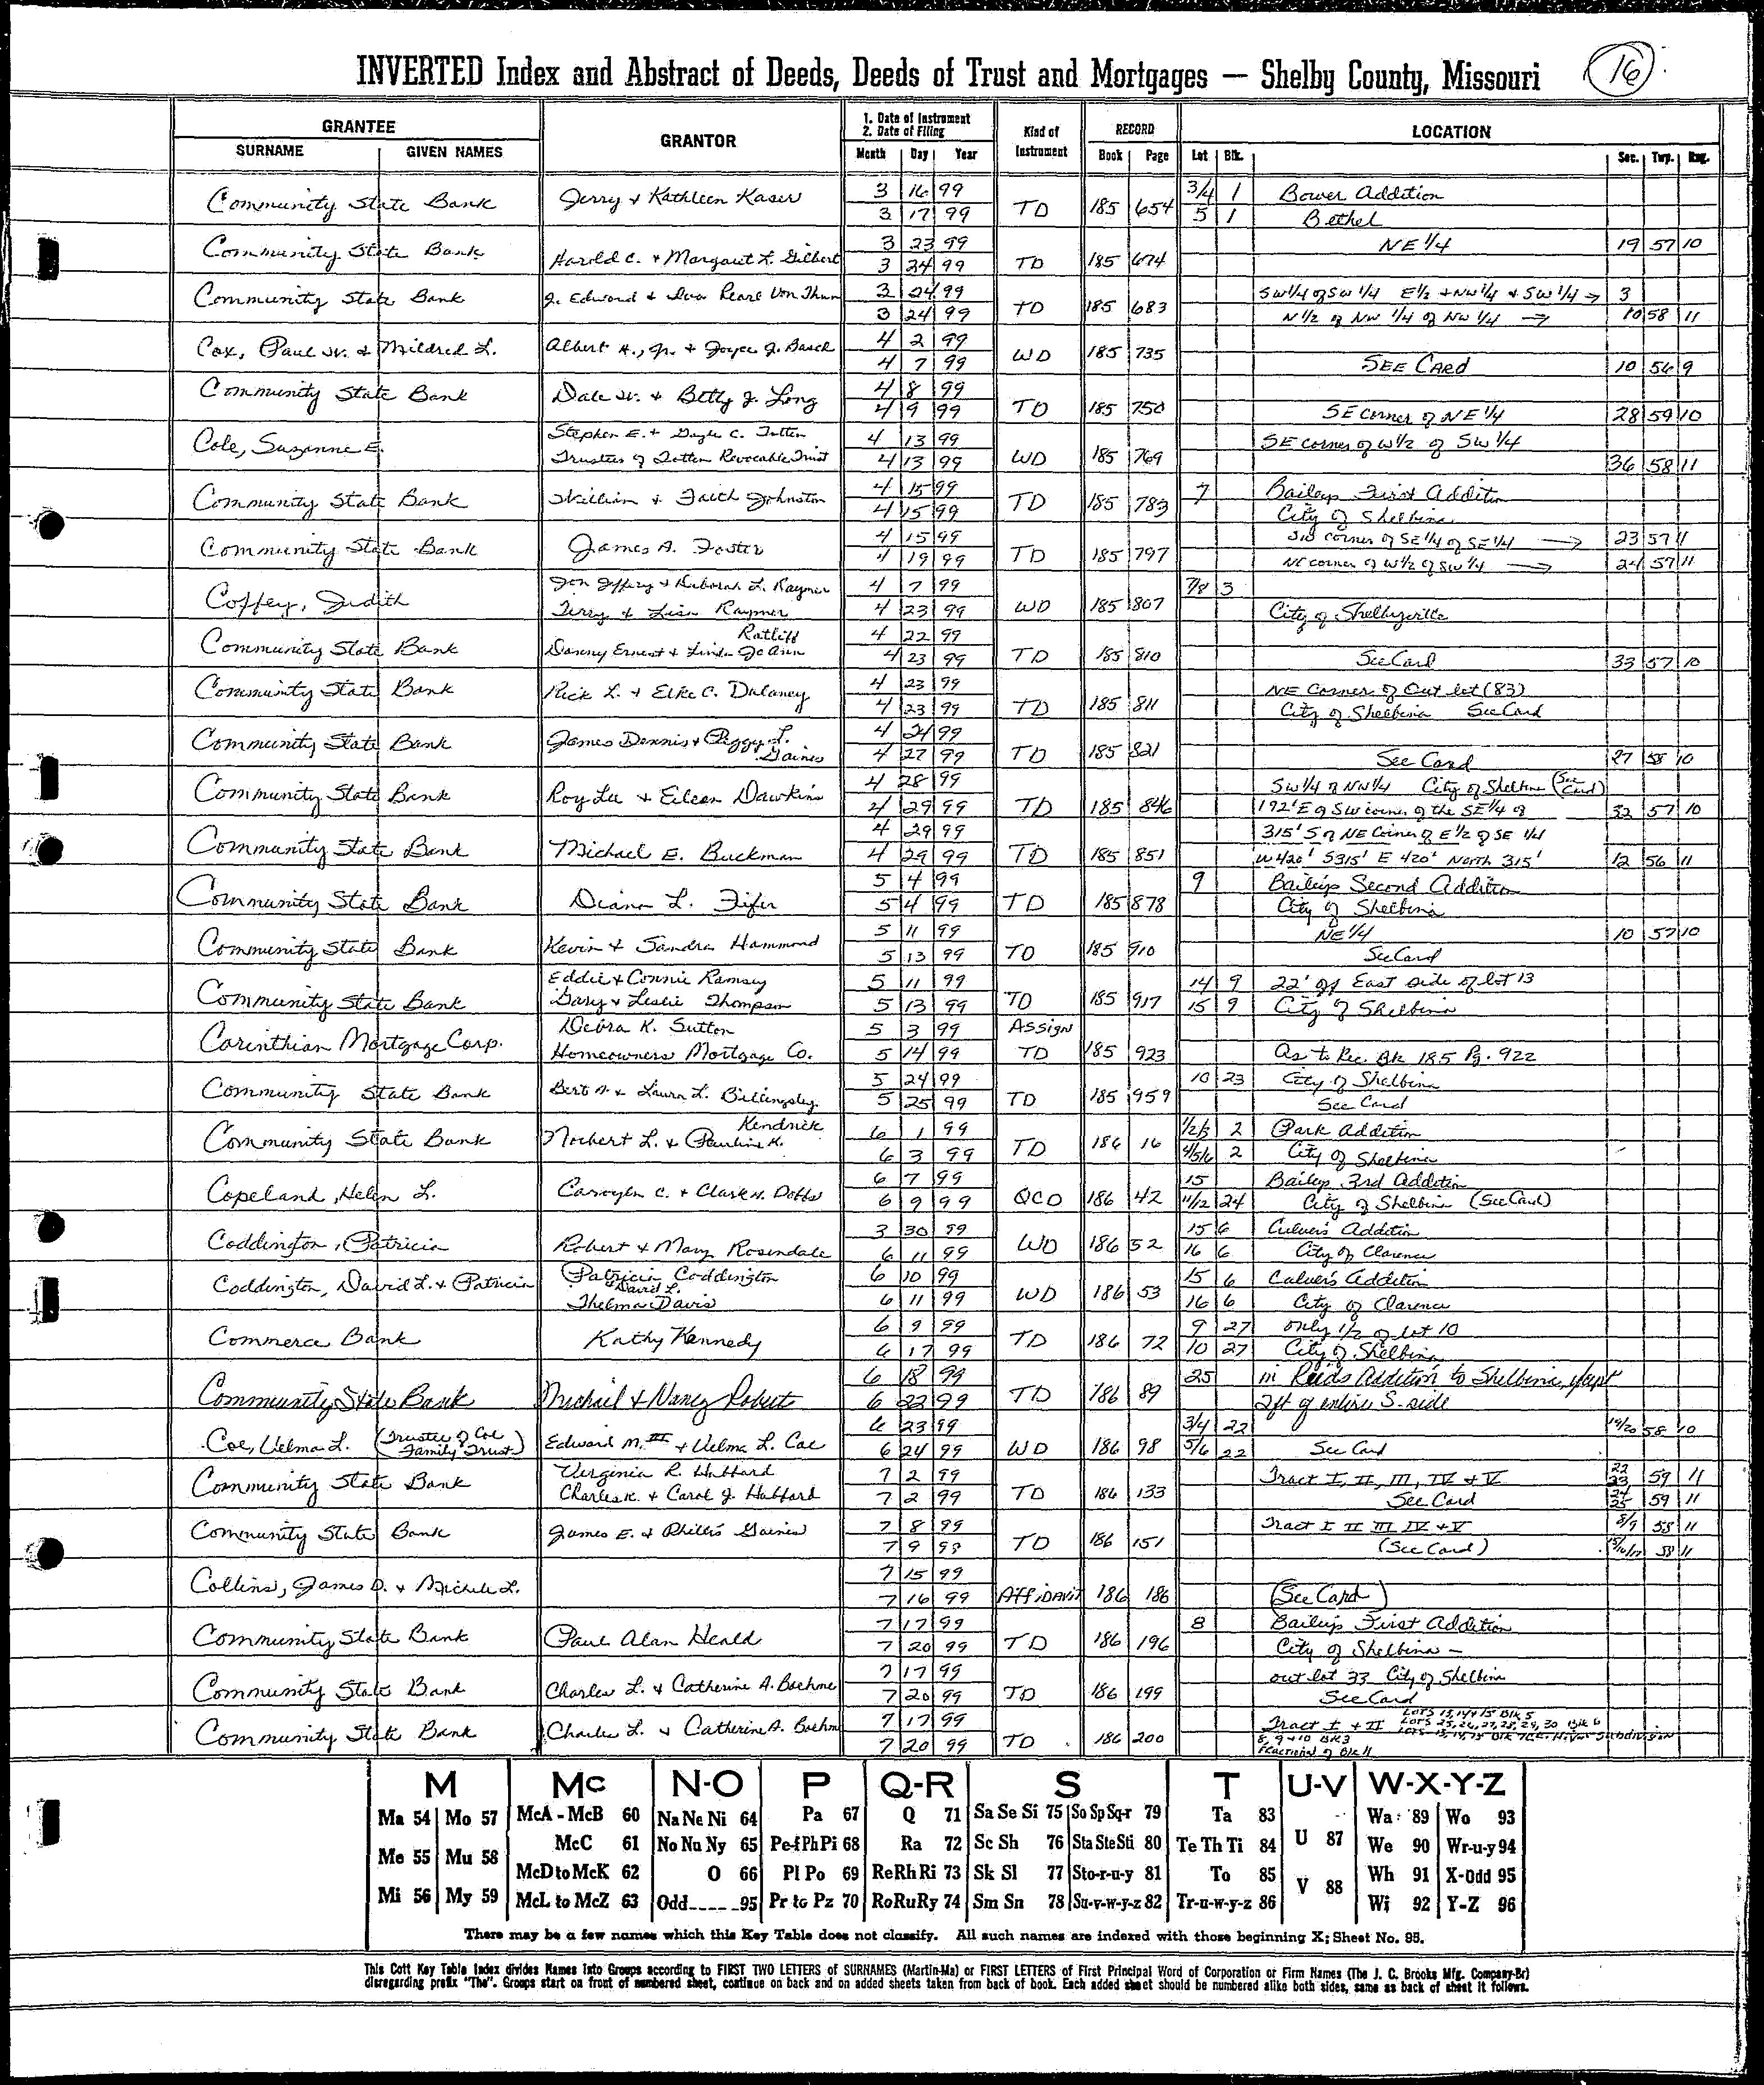 INVERTED Index and Abstract of Deeds, Deeds of Trust and Mortgages — Shelby County, Missouri 16
GRANTEE GRANTOR 1. Date of Instrument 2. Date of Filing Kind of Instrument RECORD LOCATION
SURNAME GIVEN NAMES Month Day Year Book Page Lot Blk. Sec. Twp. Rng.
Community State Bank Jerry & Kathleen Kaser 3 16 99 3/4 1 Bower Addition
3 17 99 TD 185 654 5 1 Bethel
Community State Bank Harold C. & Margaret L. Gilbert 3 23 99 NE 1/4 19 57 10
3 24 99 TD 185 674
Community State Bank J. Edward & Iva Pearl Von Thun 3 24 99 SW 1/4 of SW 1/4 E 1/2 + NW 1/4 & SW 1/4 → 3
3 24 99 TD 185 683 N 1/2 of NW 1/4 of NW 1/4 → 10 58 11
Cox, Paul W. & Mildred L. Albert H., Jr. & Joyce J. 4 2 99
4 7 99 WD 185 735 SEE CARD 10 56 9
Community State Bank Dale W. & Betty J. Long 4 8 99
4 9 99 TD 185 750 SE corner of NE 1/4 28 59 10
Cole, Suzanne E. Stephen E. & Gayle C. Totten 4 13 99 SE corner of W 1/2 of SW 1/4
Trustees of Totten Revocable Trust 4 13 99 WD 185 769 36 58 11
Community State Bank William & Faith Johnston 4 15 99 7 Baileys First Addition
4 15 99 TD 185 783 City of Shelbina
Community State Bank James A. Foster 4 15 99 SW corner of SE 1/4 of SE 1/4 → 23 57 11
4 19 99 TD 185 797 NE corner of W 1/2 of SW 1/4 → 24 57 11
Coffey, Judith Jon Jeffery & Deborah L. Raymer 4 7 99 7/8 3
Terry & Lisa Raymer 4 23 99 WD 185 807 City of Shelbyville
Community State Bank Ratliff 4 22 99
Danny Ernest & Linda Jo Ann 4 23 99 TD 185 810 See Card 33 57 10
Community State Bank Rick L. & Elke C. Dulaney 4 23 99 NE Corner of Out lot (83)
4 23 99 TD 185 811 City of Shelbina See Card
Community State Bank James Dennis & Peggy L. 4 24 99
Gaines 4 27 99 TD 185 821 See Card 27 58 10
Community State Bank Roy Lee & Eileen Dawkins 4 28 99 SW 1/4 of NW 1/4 City of Shelbina (See Card)
4 29 99 TD 185 846 192' E of SW corner of the SE 1/4 of 32 57 10
Community State Bank Michael E. Buckman 4 29 99 315' S of NE Corner of E 1/2 of SE 1/4
4 29 99 TD 185 851 W 420' S 315' E 420' North 315' 12 56 11
Community State Bank Diana L. Fifer 5 4 99 9 Baileys Second Addition
5 4 99 TD 185 878 City of Shelbina
Community State Bank Kevin & Sandra Hammond 5 11 99 NE 1/4 10 57 10
5 13 99 TD 185 910 See Card
Community State Bank Eddie & Connie Ramsey 5 11 99 14 9 22' off East side of lot 13
Gary & Leslie Thompson 5 13 99 TD 185 917 15 9 City of Shelbina
Corinthian Mortgage Corp. Debra K. Sutton 5 3 99 Assign
Homeowners Mortgage Co. 5 14 99 TD 185 923 As to Rec. Bk 185 Pg. 922
Community State Bank Bert A. & Laura L. Billingsley 5 24 99 10 23 City of Shelbina
5 25 99 TD 185 959 See Card
Community State Bank Kendrick 6 1 99 1/2/3 2 Park Addition
Norbert L. & Pauline K. 6 3 99 TD 186 16 4/5/6 2 City of Shelbina
Copeland, Helen L. Carolyn C. & Clark H. Dobbs 6 7 99 15 Baileys 3rd Addition
6 9 99 QCD 186 42 11/12 24 City of Shelbina (See Card)
Coddington, Patricia Robert & Mary Rosendale 3 30 99 15 6 Culver's Addition
6 11 99 WD 186 52 16 6 City of Clarence
Coddington, David L. & Patricia Patricia Coddington 6 10 99 15 6 Culver's Addition
David L.
Thelma Davis 6 11 99 WD 186 53 16 6 City of Clarence
Commerce Bank Kathy Kennedy 6 9 99 9 27 only 1/2 of lot 10
6 17 99 TD 186 72 10 27 City of Shelbina
Community State Bank Michael & Nancy Robert 6 18 99 25 in Reids Addition to Shelbina, except
6 22 99 TD 186 89 2ft of entire S. side
Coe, Velma L. (Trustee of Coe Family Trust) Edward M. III & Velma L. Coe 6 23 99 3/4 22 19/20 58 10
6 24 99 WD 186 98 5/6 22 See Card
Community State Bank Virginia R. Hubbard 7 2 99 Tract I, II, III, IV & V 22 23 59 11
Charles K. & Carol J. Hubbard 7 2 99 TD 186 133 See Card 24 25 59 11
Community State Bank James E. & Phillis Gaines 7 8 99 Tract I II III IV + V 8/9 58 11
7 9 99 TD 186 151 (See Card) 15/16/17 58 11
Collins, James D. & Michele L. 7 15 99
7 16 99 AFFiDAViT 186 186 (See Card)
Community State Bank Paul Alan Heald 7 17 99 8 Baileys First Addition
7 20 99 TD 186 196 City of Shelbina —
Community State Bank Charles L. & Catherine A. Boehme 7 17 99 out lot 33 City of Shelbina
7 20 99 TD 186 199 See Card
Community State Bank Charles L. & Catherine A. Boehm 7 17 99 Tract I + II LOTS 13, 14 & 15 Blk 5
LOTS 25, 26, 27, 28, 29, 30 Blk 6
7 20 99 TD 186 200 8, 9 & 10 Blk 3 Subdivision
Fractional of Blk 11
M Mc N-O P Q-R S T U-V W-X-Y-Z
Ma 54 Mo 57 McA - McB 60 Na Ne Ni 64 Pa 67 Q 71 Sa Se Si 75 So Sp Sq-r 79 Ta 83 U 87 Wa 89 Wo 93
Me 55 Mu 58 McC 61 No Nu Ny 65 Pe-f Ph Pi 68 Ra 72 Sc Sh 76 Sta Ste Sti 80 Te Th Ti 84 We 90 Wr-u-y 94
McD to McK 62 O 66 Pl Po 69 Re Rh Ri 73 Sk Sl 77 Sto-r-u-y 81 To 85 V 88 Wh 91 X-Odd 95
Mi 56 My 59 McL to McZ 63 Odd 95 Pr to Pz 70 Ro Ru Ry 74 Sm Sn 78 Su-v-w-y-z 82 Tr-u-w-y-z 86 Wi 92 Y-Z 96
There may be a few names which this Key Table does not classify. All such names are indexed with those beginning X; Sheet No. 95.
This Cott Key Table Index divides Names into Groups according to FIRST TWO LETTERS of SURNAMES (Martin-Ma) or FIRST LETTERS of First Principal Word of Corporation or Firm Names (The J. C. Brooks Mfg. Company-Br)
disregarding prefix "The". Groups start on front of numbered sheet, continue on back and on added sheets taken from back of book. Each added sheet should be numbered alike both sides, same as back of sheet it follows.